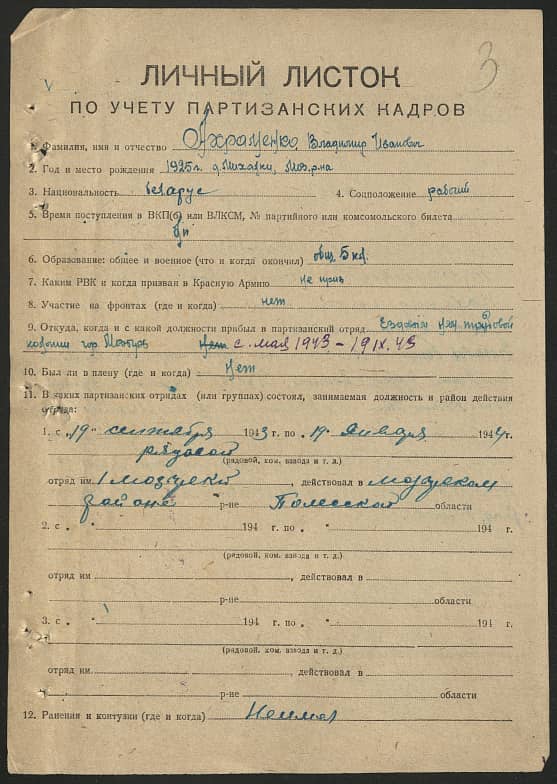 3
ЛИЧНЫЙ ЛИСТОК
ПО УЧЕТУ ПАРТИЗАНСКИХ КАДРОВ
1. Фамилия, имя и отчество Владимир Иванович
2. Год и место рождения 1925 г. д. Моз. р-на
3. Национальность беларус 4. Соцположение рабочий
5. Время поступления в ВКП(б) или ВЛКСМ, № партийного или комсомольского билета
б/п
6. Образование: общее и военное (что и когда окончил) общ. 5 кл.
7. Каким РВК и когда призван в Красную Армию не приз
8. Участие на фронтах (где и когда) нет
9. Откуда, когда и с какой должности прибыл в партизанский отряд Ездовый трудовой
колонии гор. Мозырь с мая 1943 – 19.IX.43
10. Был ли в плену (где и когда) Нет
11. В каких партизанских отрядах (или группах) состоял, занимаемая должность и район действия
отряда:
1. с „19" сентября 1943 г. по „19" января 1944 г.
рядовой
(рядовой, ком. взвода и т. д.)
отряд им 1 Мозырский, действовал в мозырском
районе р-не Полесской области
2. с „ " 194 г. по „ " 194 г.
(рядовой, ком. взвода и т. д.)
отряд им , действовал в
р-не области
3. с „ " 194 г. по „ " 194 г.
(рядовой, ком. взвода и т. д.)
отряд им. , действовал в
р-не области
12. Ранения и контузии (где и когда) Неимел